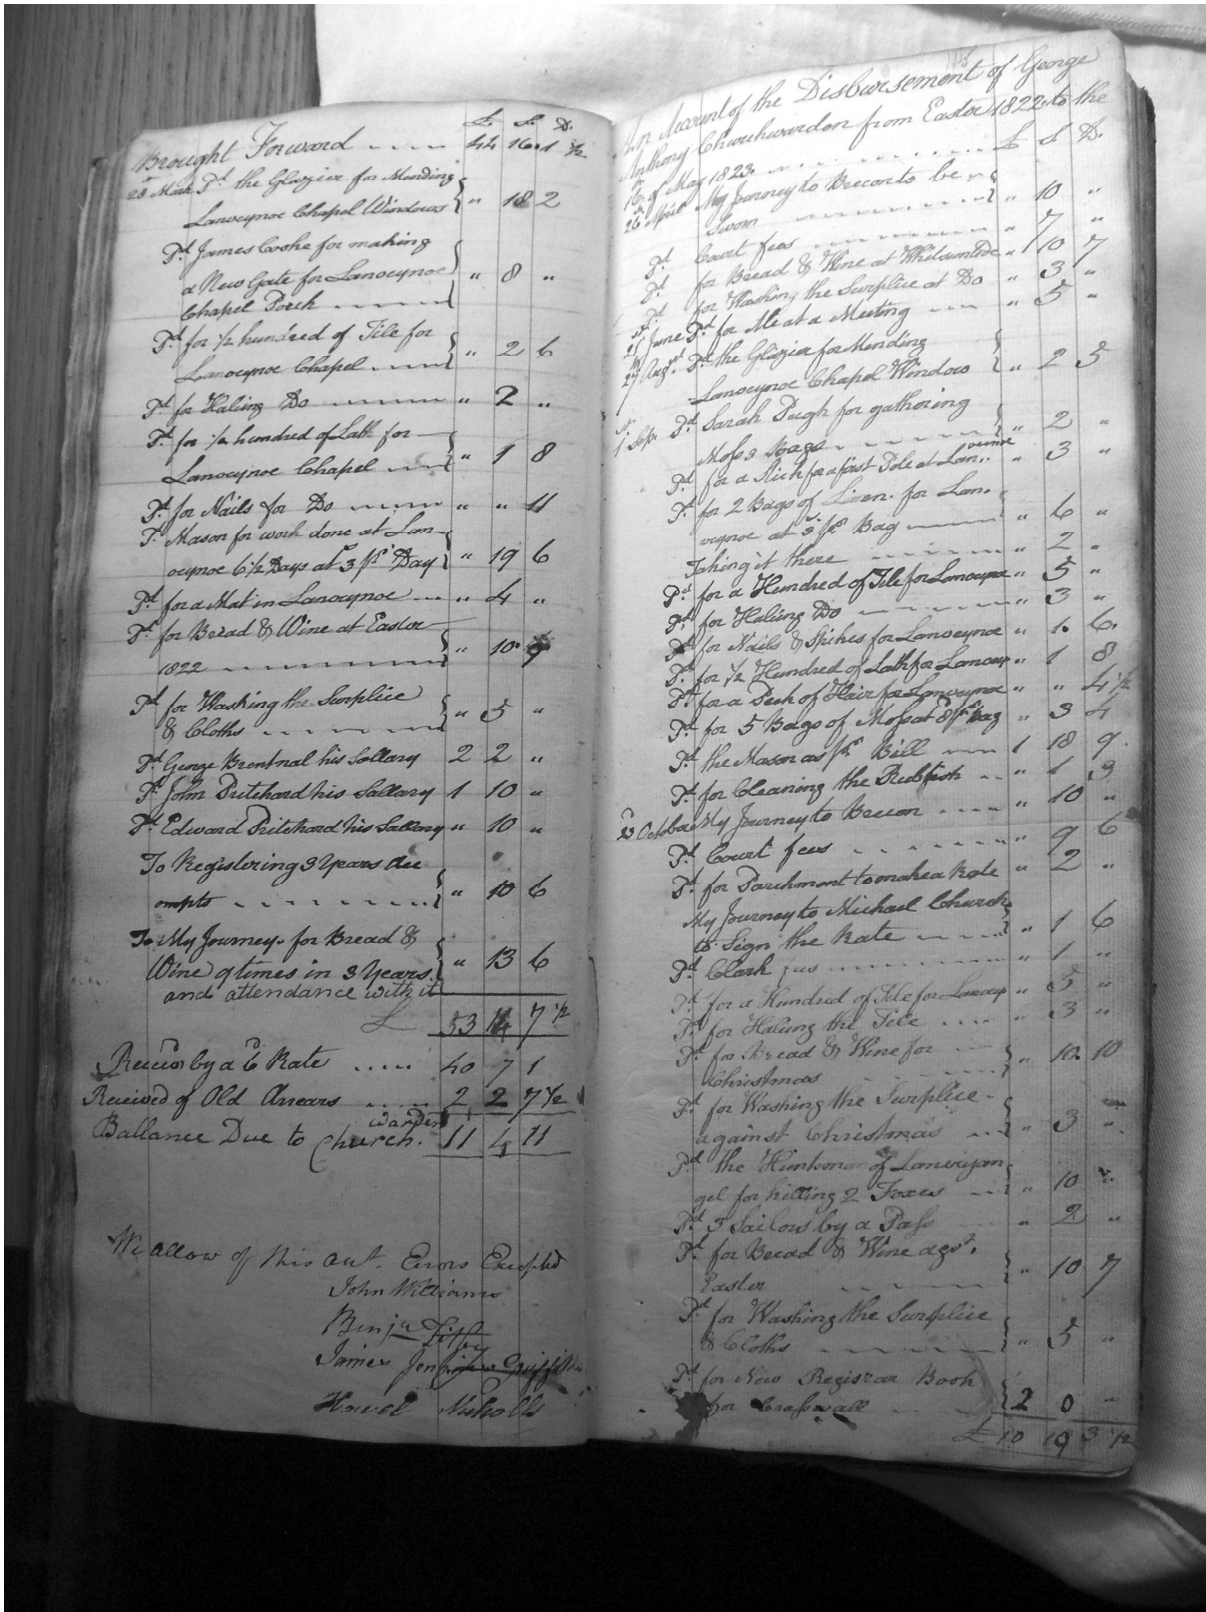 £ S. D.
Brought Forward 44 16 1 1/2
28 March Pd. the Glazier for Mending
Lanveynoe Chapel Windows " 18 2
Pd. James Cooke for making
a New Gate for Lanveynoe
Chapel Porch " 8 "
Pd. for 1/2 hundred of Tile for
Lanveynoe Chapel " 2 6
Pd. for Haling Do " 2 "
Pd. for 1/2 hundred of Lath for
Lanveynoe Chapel " 1 8
Pd. for Nails for Do " " 11
Pd. Mason for work done at Lan
veynoe 6 1/2 Days at 3 pr. Day " 19 6
Pd. for a Mat in Lanveynoe " 4 "
Pd. for Bread & Wine at Easter
1822 " 10
Pd. for Washing the Surplice
& Cloths " 5 "
Pd. George Brentnal his Sallary 2 2 "
Pd. John Pritchard his Sallary 1 10 "
Pd. Edward Pritchard his Sallary " 10 "
To Registering 3 Years Acc
ompts " 10 6
To My Journey. for Bread &
Wine 9 times in 3 Years
and attendance with it " 13 6
£ 53 14 7 1/2
Receivd by a 6d Rate 40 7 1
Received of Old Arrears 2 2 7 1/2
warden
Ballance Due to Church. 11 4 11
We allow of this Act. Errors Excepted
John Williams
Benja
James Jenkins Griffiths
Howel Nicholls
An Account of the Disbursement of George
Anthony Churchwarden from Easter 1822 to the
16 of May 1823. £ S D.
26 April My Journey to Brecon to be
Sworn " 10 "
Pd. Court fees " 7 "
Pd. for Bread & Wine at Whitsuntide " 10 7
Pd. for Washing the Surplice at Do " 3 "
June Pd. for Ale at a Meeting " 5 "
27 Augt. Pd. the Glazier for Mending
Lanveynoe Chapel Window " 2 5
1 Sepr. Pd. Sarah Pugh for gathering
Moss 3 Bags " 2 "
Pd. for a Pole at Lanveynoe " 3 "
Pd. for 2 Bags of Lime. for Lan.
veynoe at 3s. pr. Bag " 6 "
Taking it there " 2 "
Pd. for a Hundred of Tile for Lanveynoe " 5 "
Pd. for Haling Do " 3 "
Pd. for Nails & Spikes for Lanveynoe " 1. 6.
Pd. for 1/2 Hundred of Lath for Lanvey " 1 8
Pd. for a Peck of Hair for Lanveynoe " " 4 1/2
Pd. for 5 Bags of Moss at 8d pr. Bag " 3 4
Pd. the Mason as pr. Bill 1 18 9.
Pd. for Cleaning the Rubbish " 1 3
23 October My Journey to Brecon " 10 "
Pd. Court fees " 9 6
Pd. for Parchment to make a Rate " 2 "
My Journey to Michael Church
to Sign the Rate " 1 6
Pd. Clark fees " 1 "
Pd. for a Hundred of Tile for Lanvey " 5 "
Pd. for Haling the Tile " 3 "
Pd. for Bread & Wine for
Christmas " 10. 10
Pd. for Washing the Surplice
against Christmas " 3 "
Pd. the Huntsman of Lanvigan
gel for killing 2 Foxes " 10 "
Pd. 3 Sailors by a Pass " 2 "
Pd. for Bread & Wine agst.
Easter " 10 7
Pd. for Washing the Surplice
& Cloths " 5 "
Pd. for New Registrar Book
for Craswall 2 0 "
£ 10 19 3 1/2